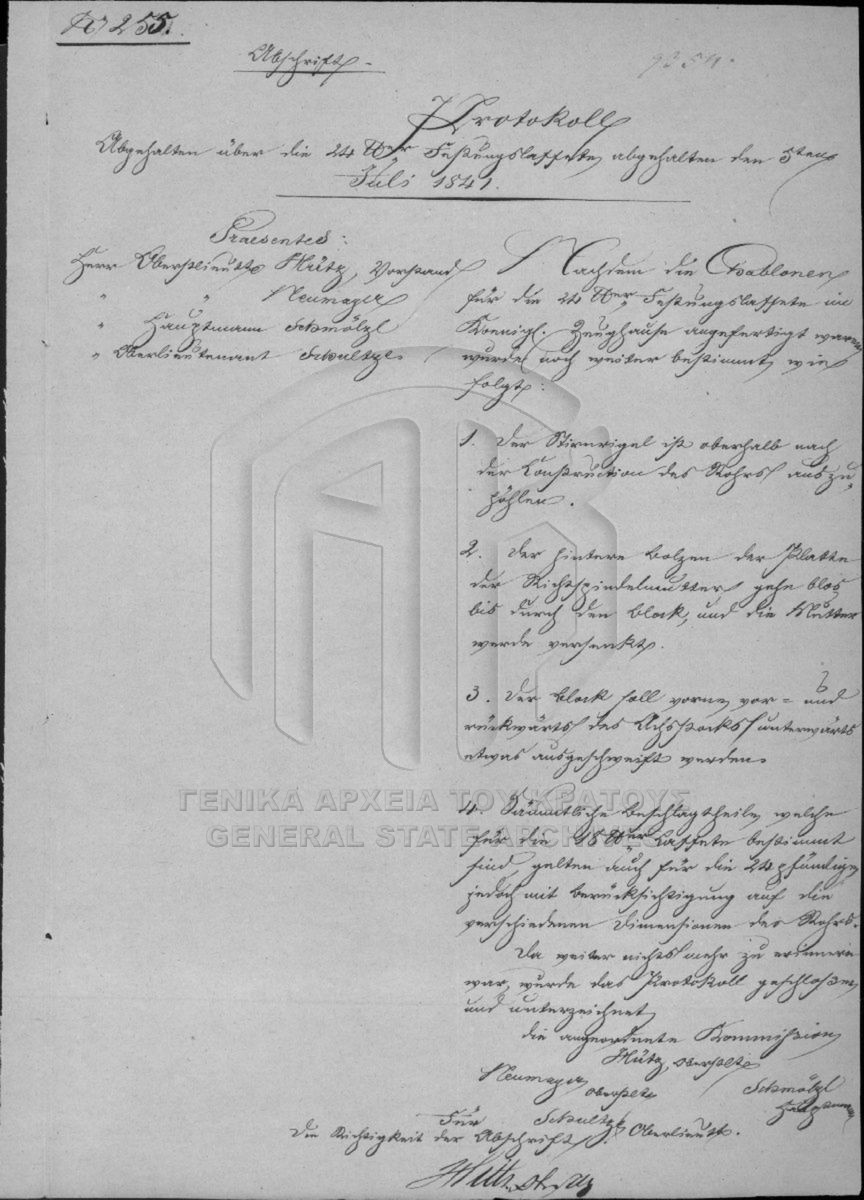 No 255.
Abschrift
Protokoll
Abgehalten über die 24 ℔er Festungslaffete, abgehalten den 5ten
Juli 1841.
Praesentes:
Herr Oberstlieutt Hütz, Vorstand
" " Neumayer
" Hauptmann Schmölzl
" Oberlieutenant Schultze
Nachdem die Chablonen
für die 24 ℔er Festungslaffete im
Koenigl. Zeughause angefertigt waren
wurde noch weiter bestimmt, wie
folgt:
1. Der Stirnrigel ist oberhalb nach
der Construction des Rohrs auszu-
höhlen.
2. Der hintere Bolzen der Platte
der Richtspindelmutter, gehe blos
bis durch den Block, und die Mutter
werde versenkt.
3. Der Block soll vorne, vor- und
rückwärts des Achsstocks unterwärts
etwas ausgeschweift werden.
4. Sämmtliche Beschlagtheile, welche
für die 18 ℔er Laffete bestimmt
sind, gelten auch für die 24 pfündige,
jedoch mit Berücksichtigung auf die
verschiedenen Dimensionen des Rohrs.
Da weiter nichts mehr zu erinnern
war, wurde das Protokoll geschloßen
und unterzeichnet
die angeordnete Kommission
Hütz, Oberstlt
Neumayer Schmölzl
Oberstlt Hauptmann
Für Schultze
Die Richtigkeit der Abschrift Oberlieutt.
ΓΕΝΙΚΑ ΑΡΧΕΙΑ ΤΟΥ ΚΡΑΤΟΥΣ
GENERAL STATE ARCHIVES